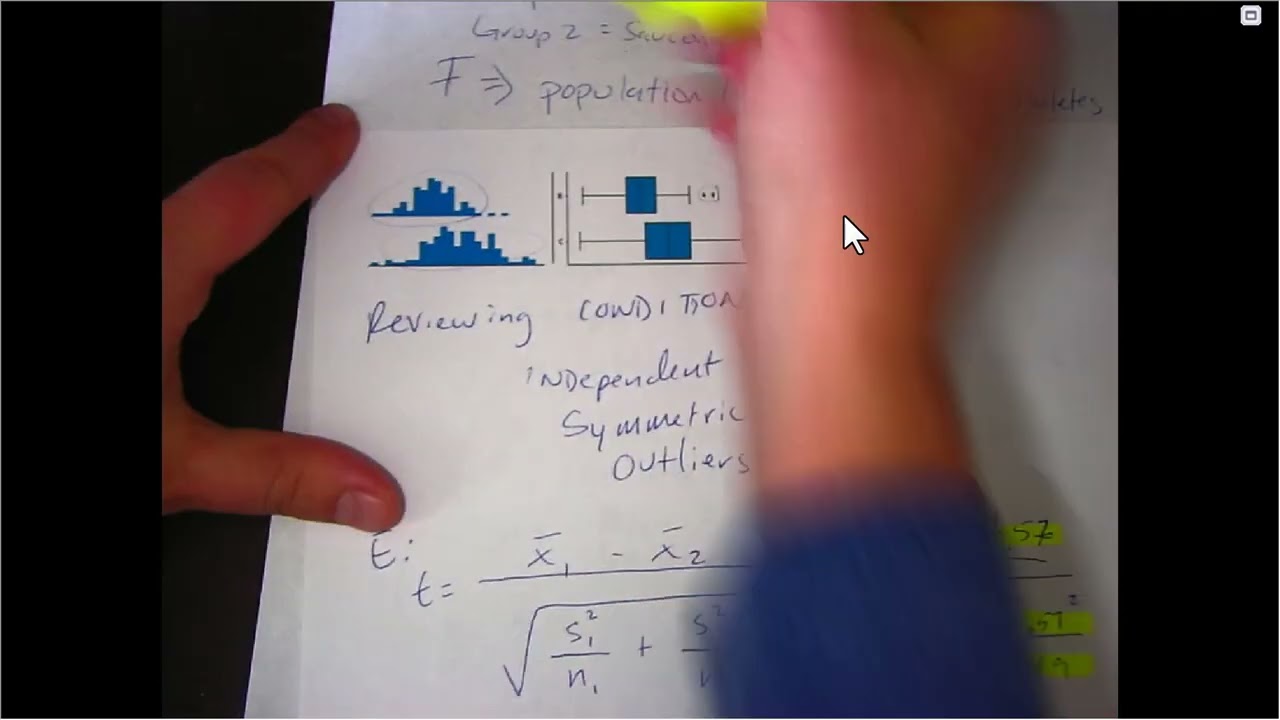 Group 2 =
F ⇒ population
Reviewing CONDITION
INDependent
Symmetric
Outliers
t:
t = x̄₁ - x̄₂
√ s₁² + s²
n₁ n
.57
.57²
19